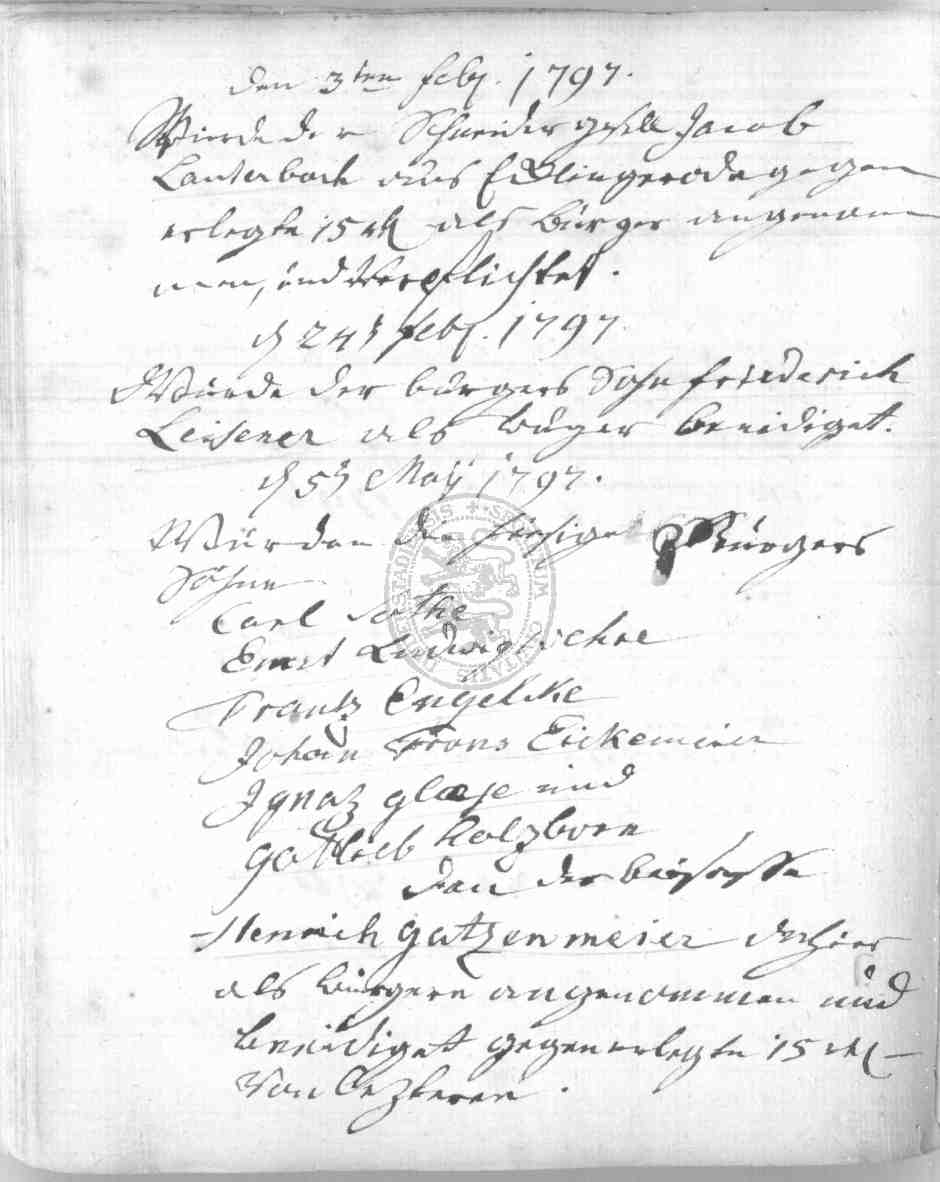 den 3ten feby. 1797.
Wurde der Schneider geselle Jacob
Lauterbach aus Esplingerode gegen
erlegte 15 rthl als bürger angenom
men, und Verpflichtet.
d 24t feby. 1797
Wurde der bürgers Sohn friederich
Leisener als burger beeidiget.
d 5t Maÿ 1797.
Würden die hiesige Bürgers
Söhne
Carl
Ernst Ludwig
Frantz Engelke
Johan Frans Eickemeier
Ignaz glæse und
Gottlieb Holzborn
dan der beysasse
Henrich Gatzenmeier dahier
als bürgere angenommen und
beeidiget gegen erlegte 15 rthl
Von letzteren.
SIGILLUM CIVITATIS DUDERSTADIENSIS